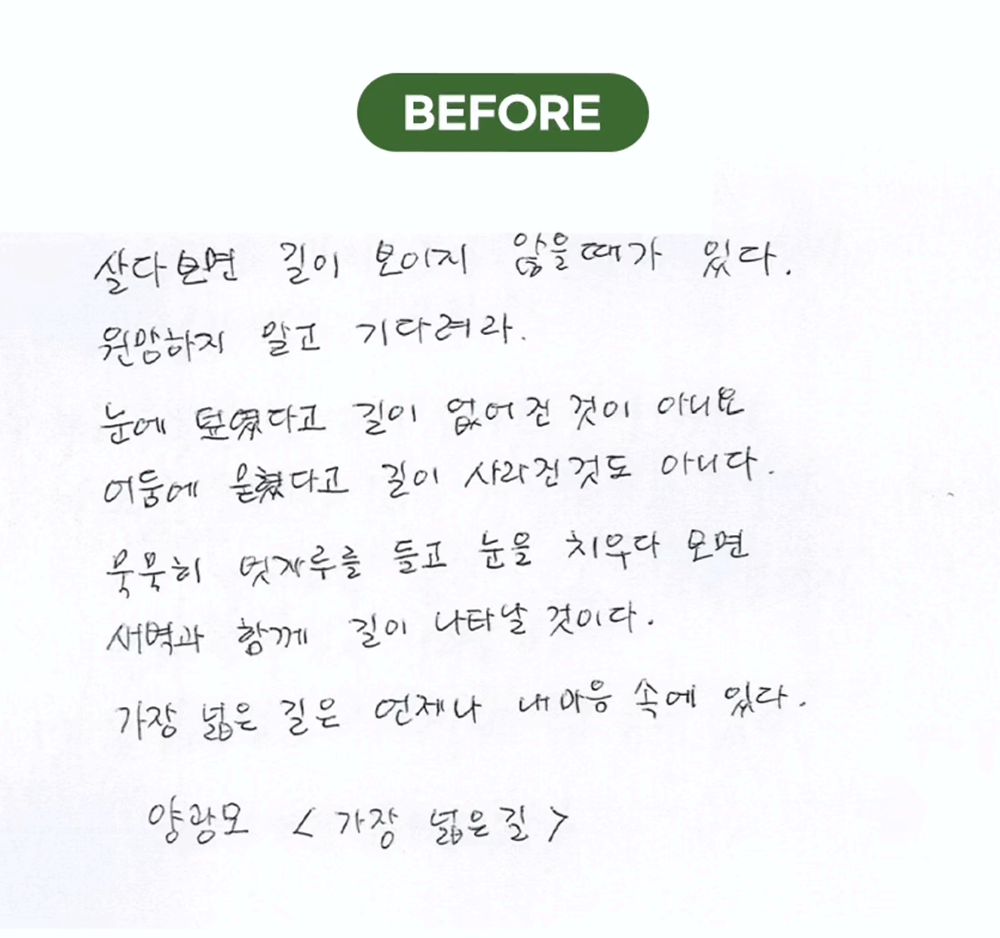 BEFORE
살다보면 길이 보이지 않을때가 있다.
원망하지 말고 기다려라.
눈에 덮였다고 길이 없어진 것이 아니요
어둠에 묻혔다고 길이 사라진것도 아니다.
묵묵히 빗자루를 들고 눈을 치우다 보면
새벽과 함께 길이 나타날 것이다.
가장 넓은 길은 언제나 내마음 속에 있다.
양광모 <가장 넓은길>